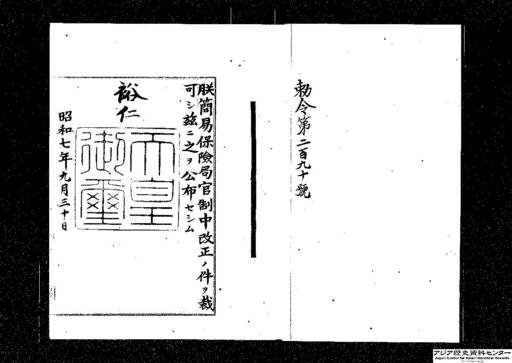 勅令第二百九十號
朕簡易保險局官制中改正ノ件ヲ裁
可シ茲ニ之ヲ公布セシム
裕仁
天皇御璽
昭和七年九月三十日
アジア歴史資料センター
Japan Center for Asian Historical Records